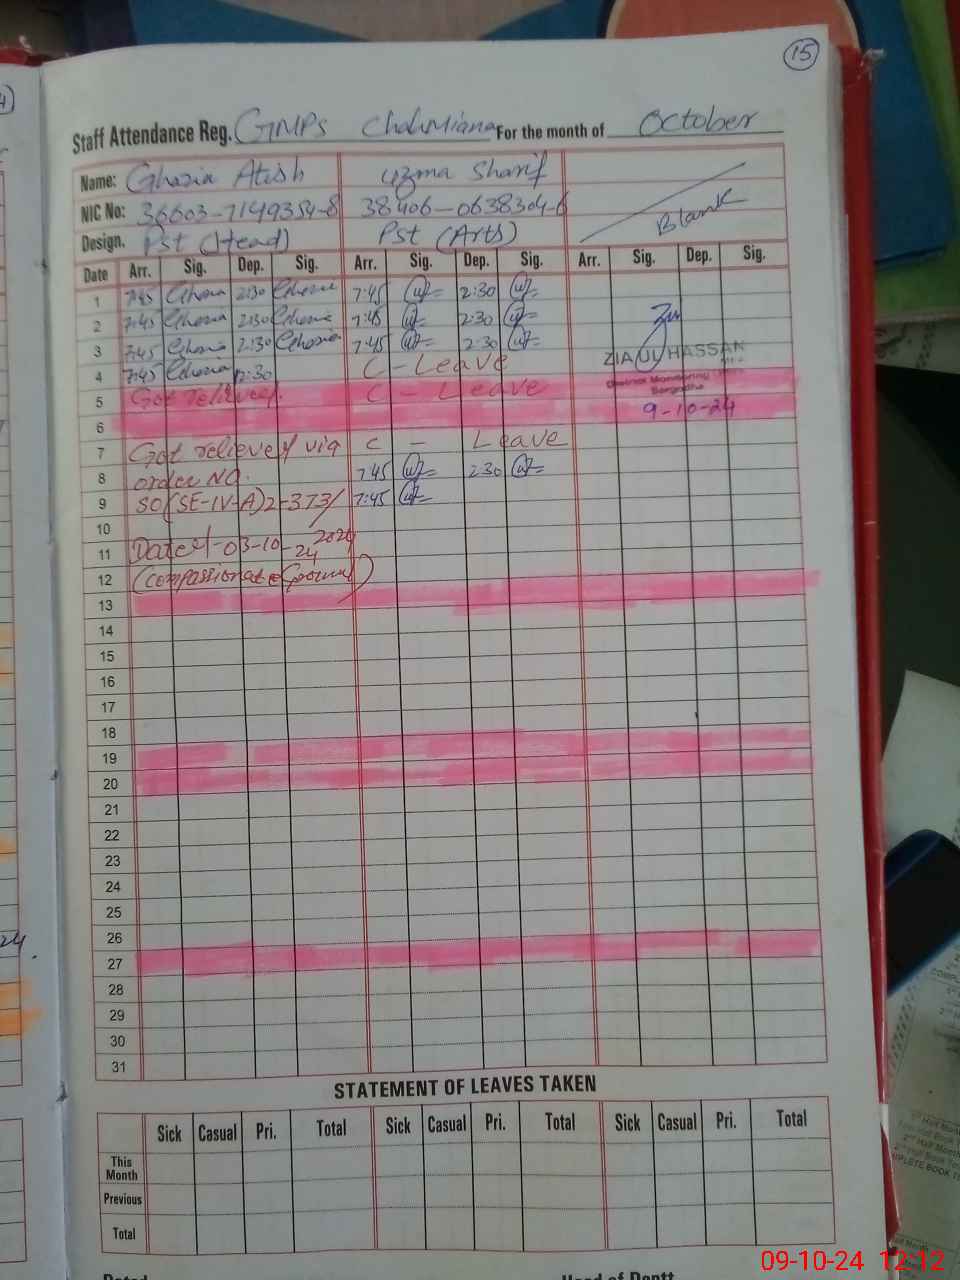 15
Staff Attendance Reg. GMPS Chahmiana For the month of October
Name: Ghazia Atish Uzma Sharif
NIC No: 36603-7149354-8 38406-0638304-6
Blank
Design. Pst (Head) Pst (Arts)
Date Arr. Sig. Dep. Sig. Arr. Sig. Dep. Sig. Arr. Sig. Dep. Sig.
1 7:45 Ghazia 2:30 Ghazia 7:45 2:30
2 7:45 Ghazia 2:30 Ghazia 7:45 2:30
3 7:45 Ghazia 2:30 Ghazia 7:45 2:30 ZIA UL HASSAN
4 7:45 Ghazia 2:30 C-Leave District Monitoring
5 Got relieved. C - Leave Sargodha
6 9-10-24
7 Got relieved via C - Leave
8 order NO. 7:45 2:30
9 SO(SE-IV-A)2-373/ 7:45
10 2024
11 Dated-03-10-24
12 (compassionate Ground)
13
14
15
16
17
18
19
20
21
22
23
24
25
26
27
28
29
30
31
STATEMENT OF LEAVES TAKEN
Sick Casual Pri. Total Sick Casual Pri. Total Sick Casual Pri. Total
This Month
Previous
Total
Dated
Head of Deptt
09-10-24 12:12